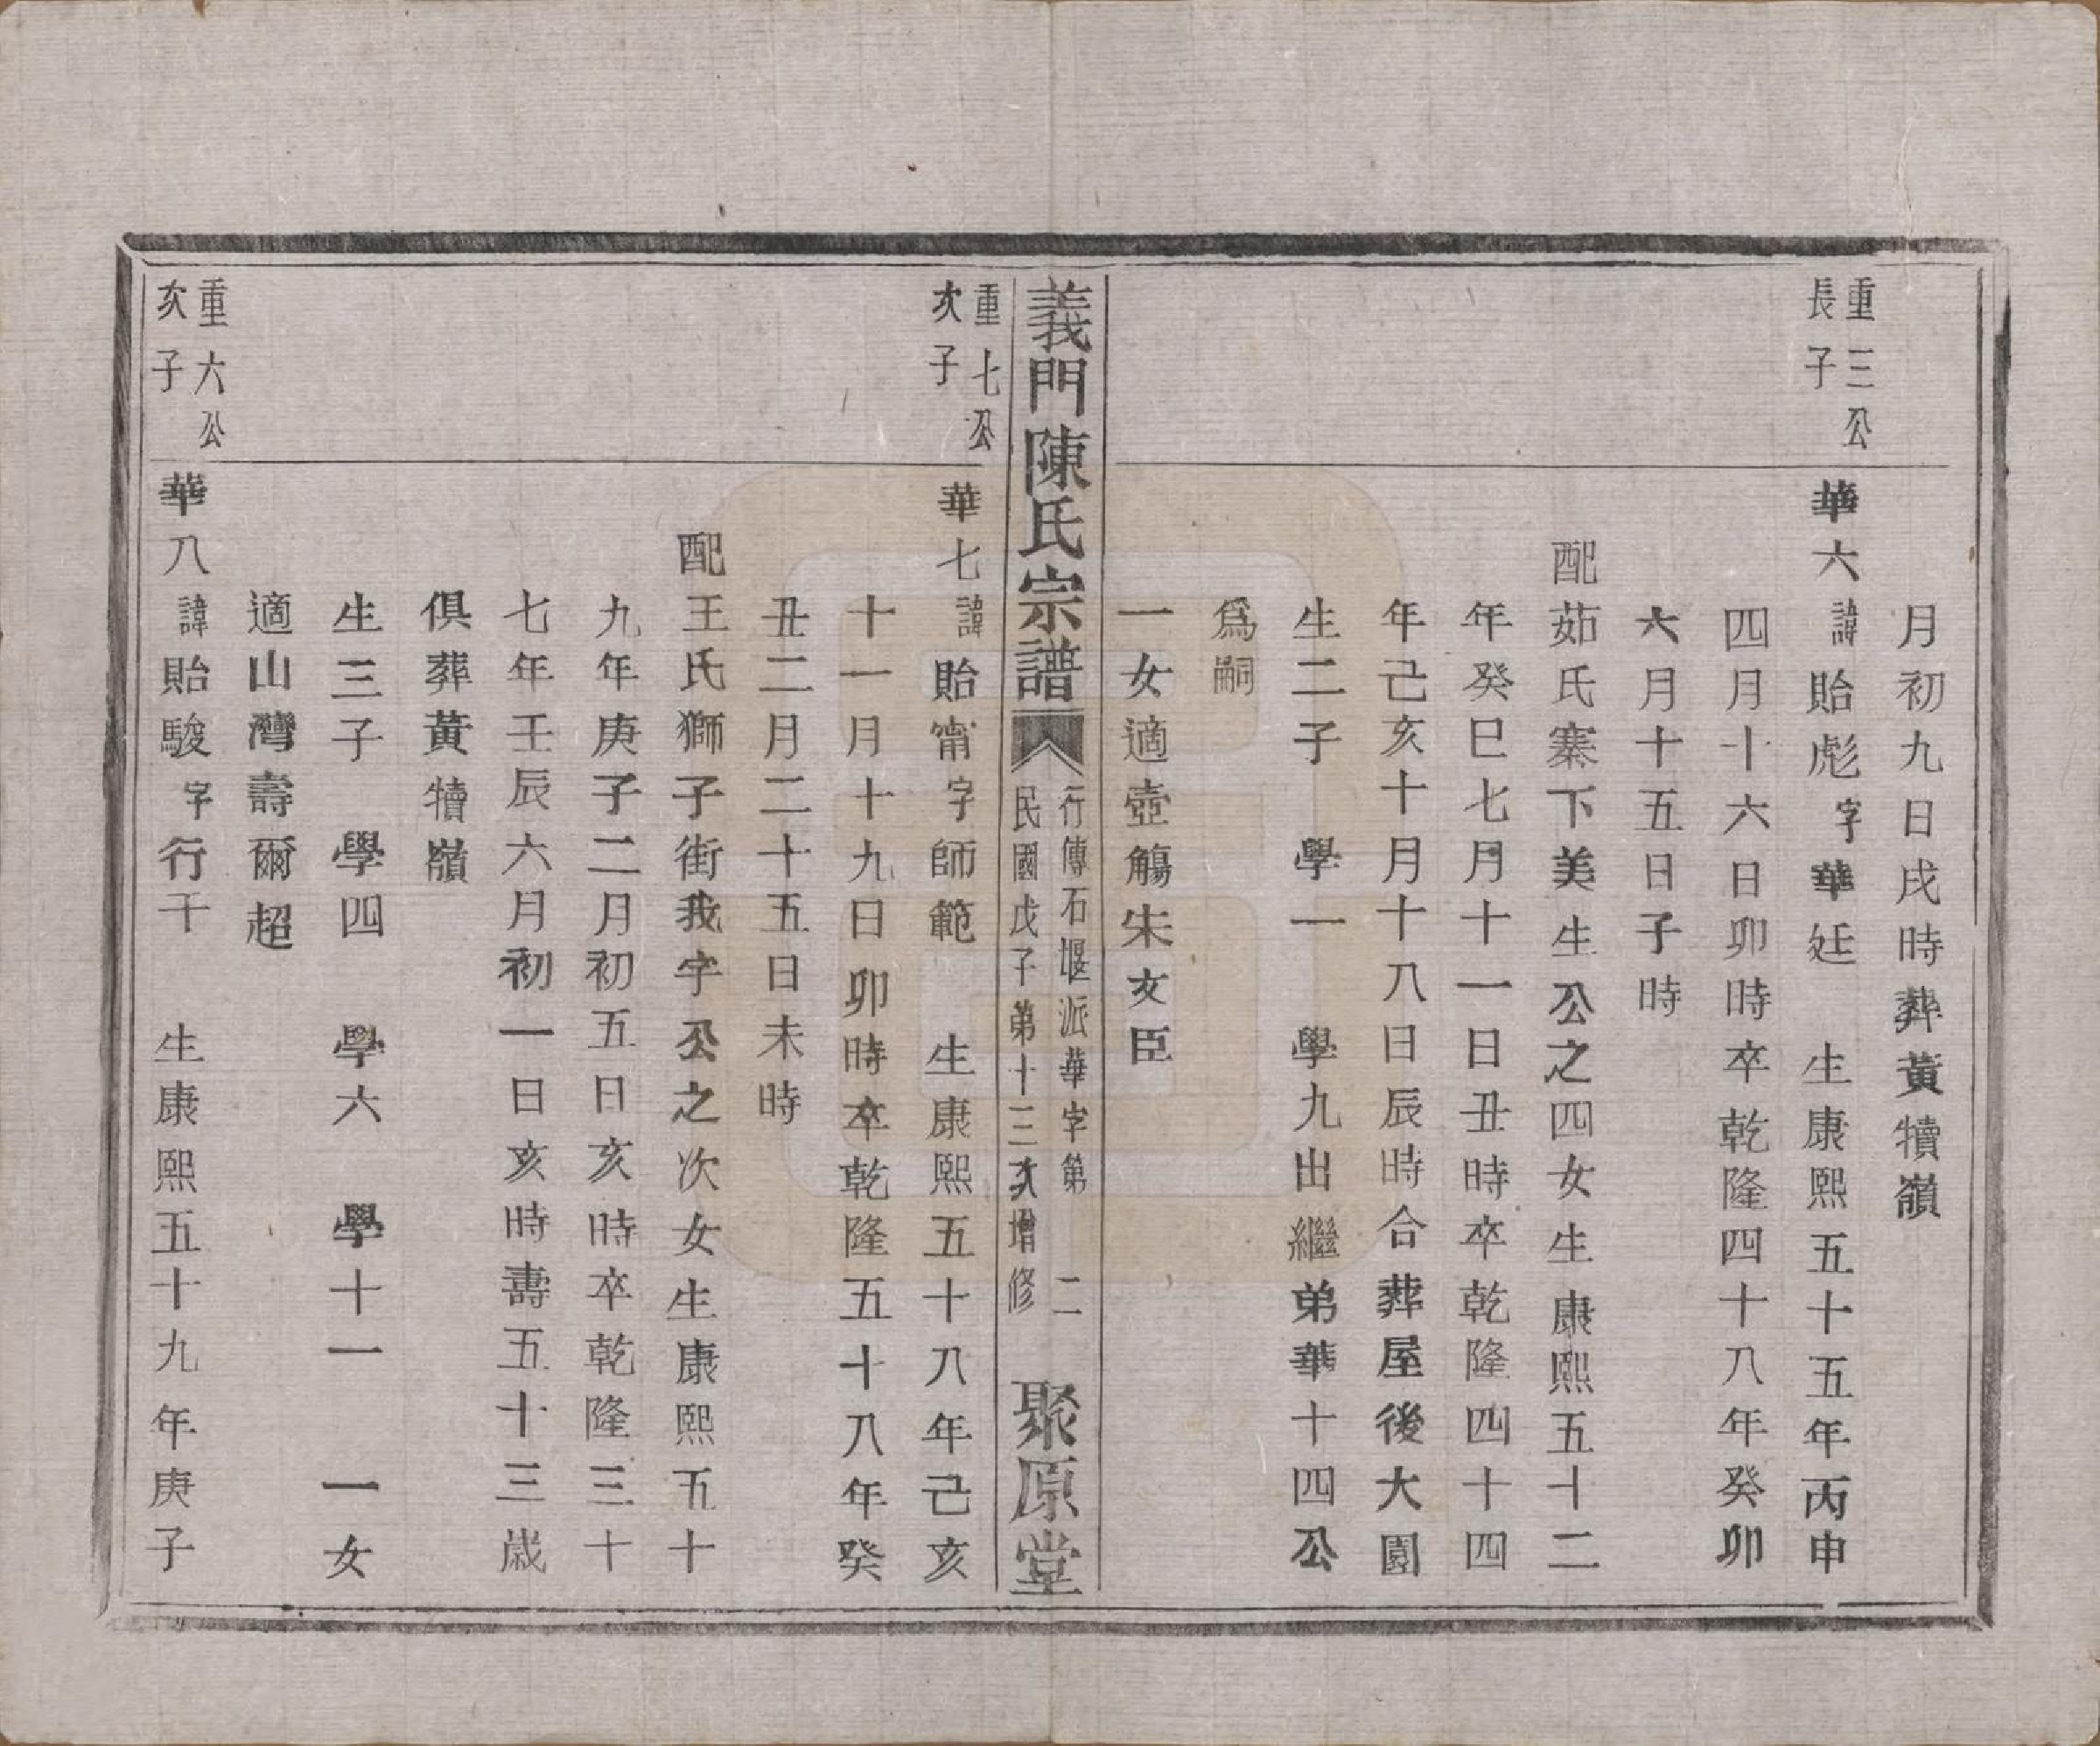 月初九日戌時葬黃犢嶺
重三公
長子
華六諱貽彪字華廷　生康熙五十五年丙申
四月十六日卯時卒乾隆四十八年癸卯
六月十五日子時
配茹氏寨下美生公之四女生康熙五十二
年癸巳七月十一日丑時卒乾隆四十四
年己亥十月十八日辰時合葬屋後大園
生二子　學一　學九出繼弟華十四公
爲嗣
一女適壺觴朱友臣
義門陳氏宗譜
行傳石堰派華字第　二
民國戊子第十三次增修
聚原堂
重七公
次子
華七諱貽甯字師範　生康熙五十八年己亥
十一月十九日卯時卒乾隆五十八年癸
丑二月二十五日未時
配王氏獅子街我字公之次女生康熙五十
九年庚子二月初五日亥時卒乾隆三十
七年壬辰六月初一日亥時壽五十三歲
俱葬黃犢嶺
生三子　學四　學六　學十一　一女
適山灣壽爾超
重六公
次子
華八諱貽駿字行千　生康熙五十九年庚子